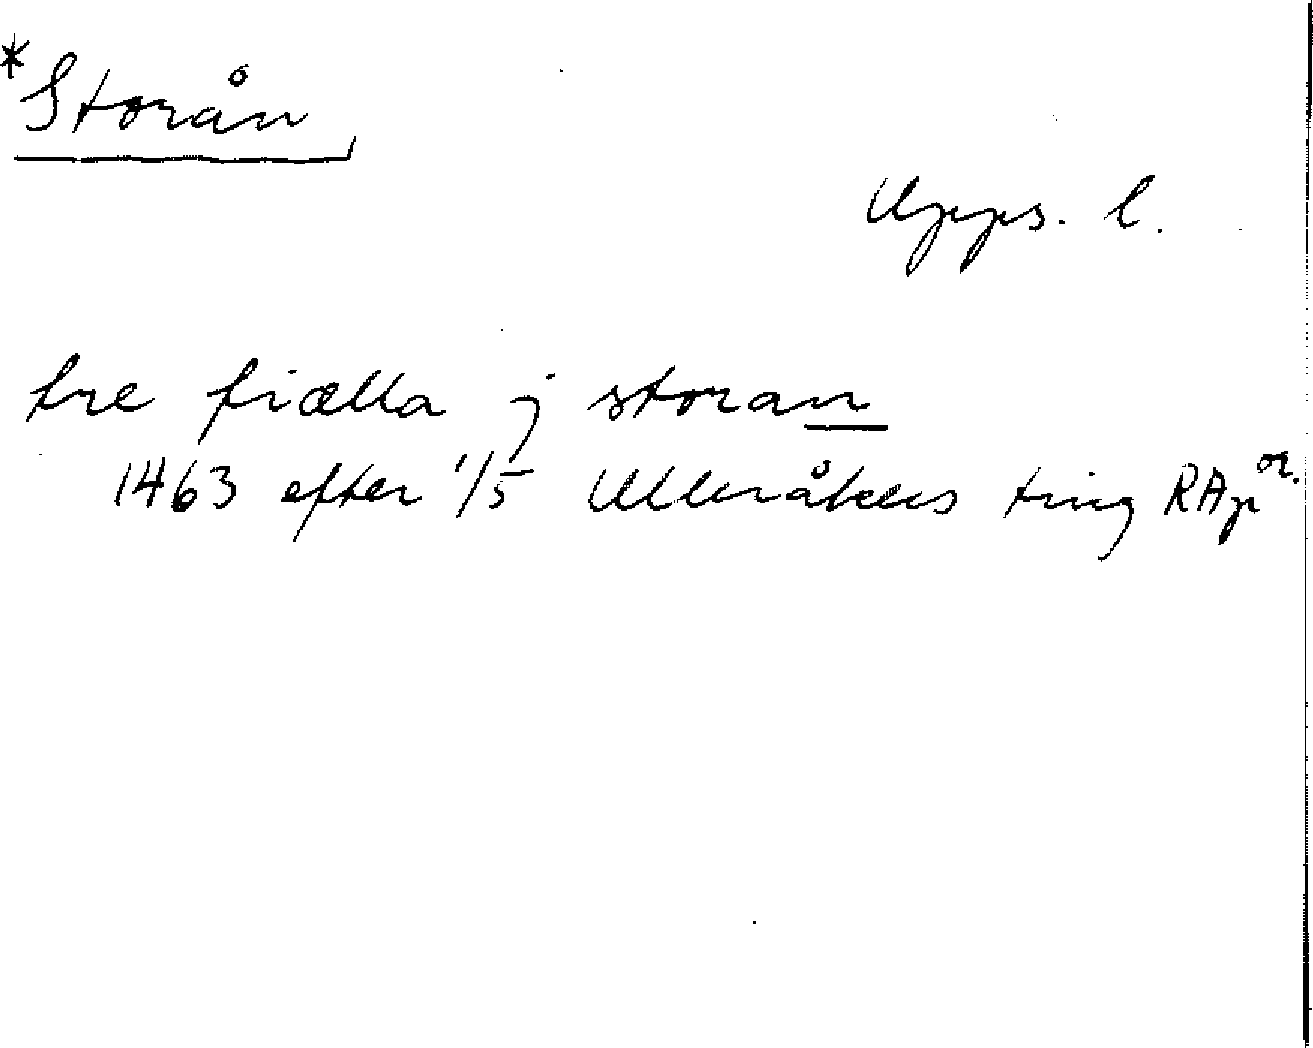 *Storån
Upps. l.
tre fiælla j storan
1463 efter 1/5 Ulleråkers ting RAp or.